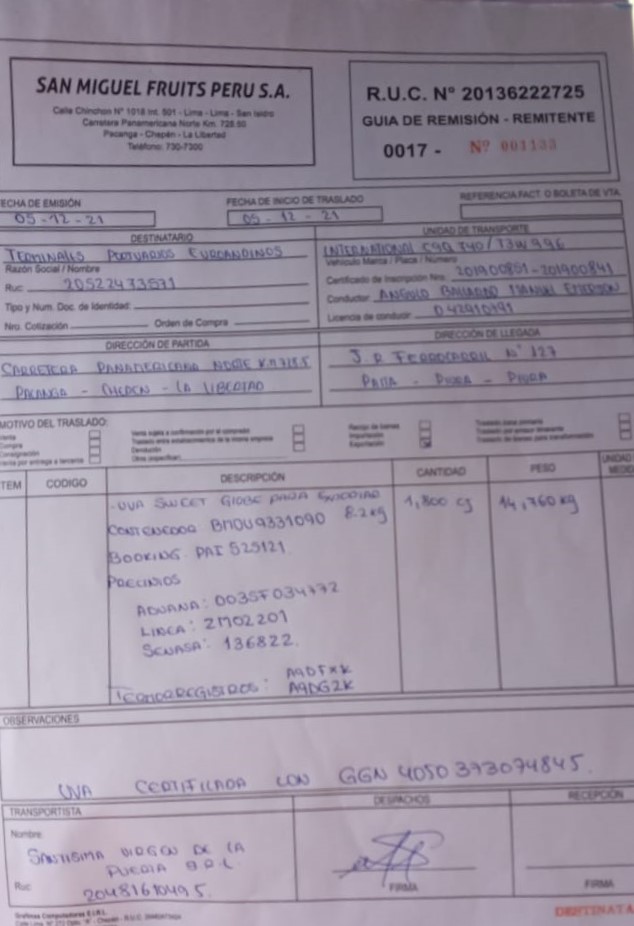 SAN MIGUEL FRUITS PERU S.A.
Calle Chinchon Nº 1018 Int. 501 - Lima - Lima - San Isidro
Carretera Panamericana Norte Km. 728.50
Pacanga - Chepén - La Libertad
Teléfono: 730-7300
R.U.C. Nº 20136222725
GUIA DE REMISIÓN - REMITENTE
0017 - Nº 001133
ECHA DE EMISIÓN
05-12-21
FECHA DE INICIO DE TRASLADO
05-12-21
REFERENCIA FACT. O BOLETA DE VTA.
DESTINATARIO
TERMINALES PORTUARIOS EUROANDINOS
Razón Social / Nombre
Ruc: 20522473571
Tipo y Num. Doc. de Identidad:
Nro. Cotización: Orden de Compra:
UNIDAD DE TRANSPORTE
INTERNATIONAL
Vehículo Marca / Placa / Número
Certificado de Inscripción Nro.
Conductor: ANGULO MANUEL EMERSON
Licencia de conducir:
DIRECCIÓN DE PARTIDA
CARRETERA PANAMERICANA NORTE
PACANGA - CHEPEN - LA LIBERTAD
DIRECCIÓN DE LLEGADA
J.R FERROCARRIL Nº 127
PAITA - PIURA - PIURA
MOTIVO DEL TRASLADO:
Venta
Compra
Consignación
Venta por entrega a terceros
Venta sujeta a confirmación por el comprador
Traslado entre establecimientos de la misma empresa
Devolución
Otros
Recojo de bienes
Importación
Exportación
Traslado zona primaria
Traslado por emisor itinerante
Traslado de bienes para transformación
TEM
CODIGO
DESCRIPCIÓN
CANTIDAD
PESO
UNIDAD
-UVA SWEET GLOBE 8.2 kg
1,800 cj
14,760 kg
CONTENEDOR BMOU9331090
BOOKING PAI 525121
PRECINTOS
ADUANA: 0035F034772
LINEA: ZM02201
SENASA: 136822.
TERMOREGISTROS: A9DFXK
A9DG2K
OBSERVACIONES
UVA CERTIFICADA CON GGN 4050373074845.
TRANSPORTISTA
Nombre:
SANTISIMA VIRGEN DE LA
PUERTA
Ruc: 20481610495.
DESPACHOS
FIRMA
RECEPCIÓN
FIRMA
Graficas Computadores E.I.R.L.
DESTINATA